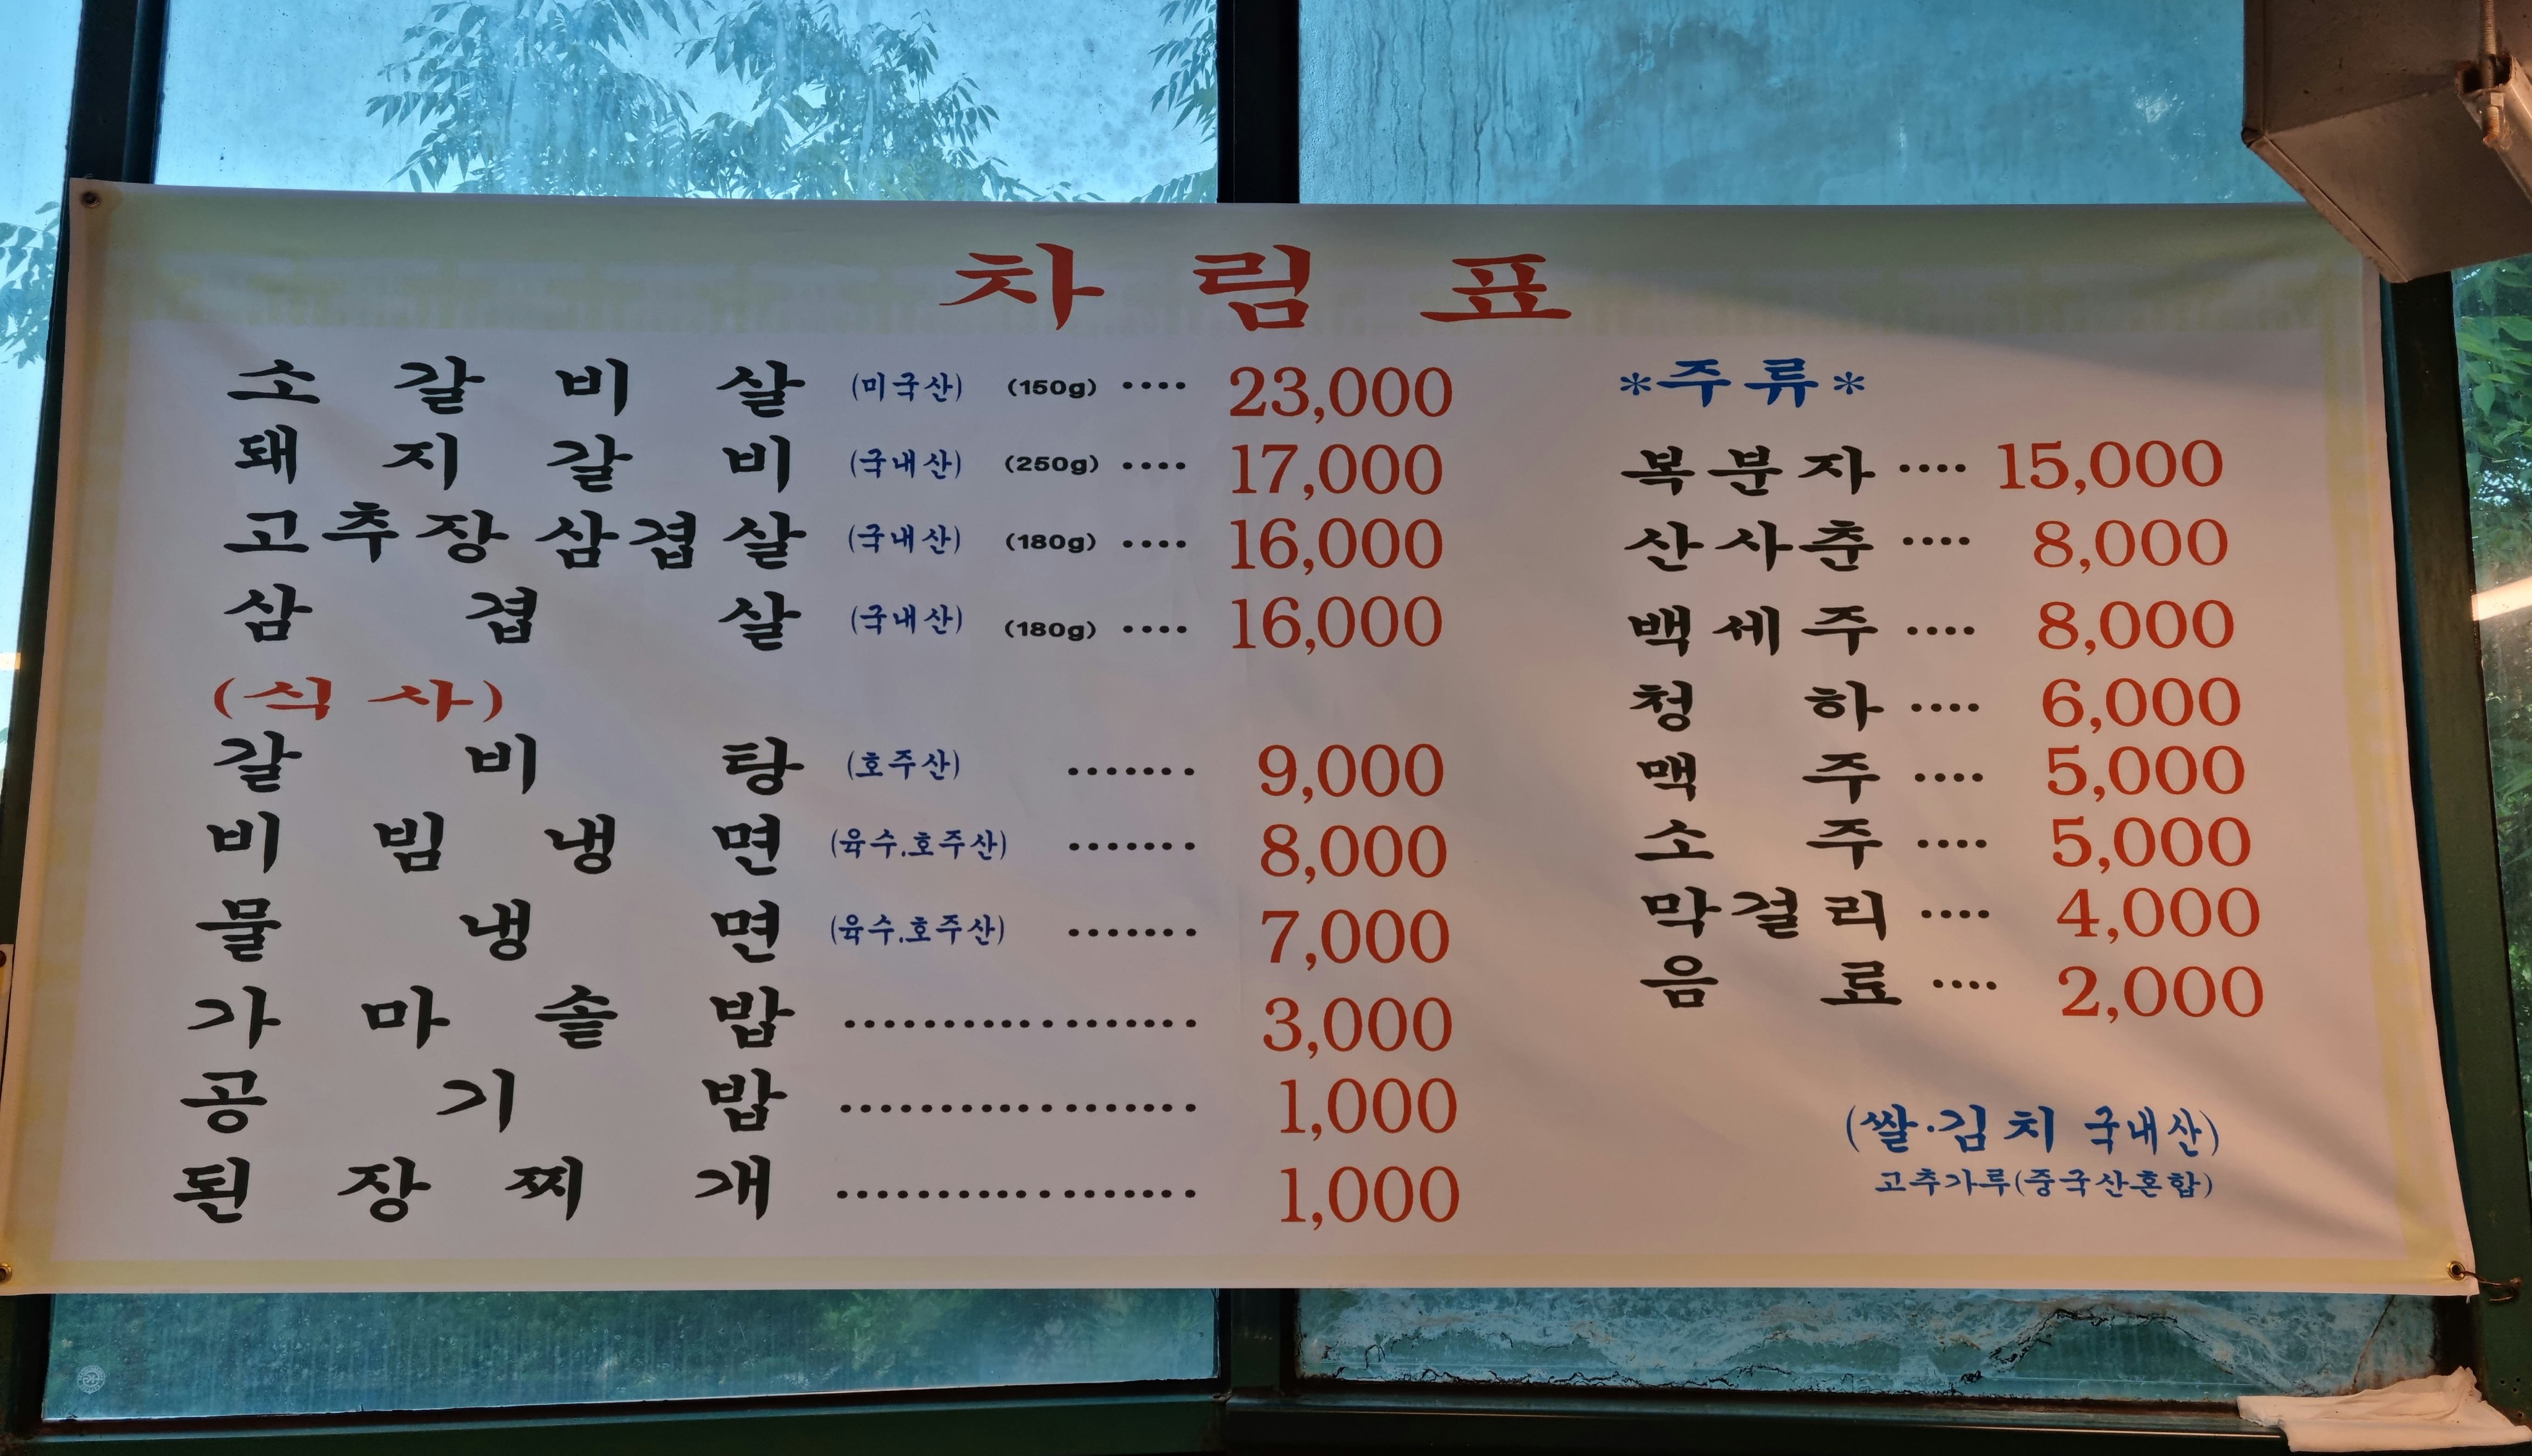 차림표
소갈비살 (미국산) (150g) ···· 23,000
돼지갈비 (국내산) (250g) ···· 17,000
고추장삼겹살 (국내산) (180g) ···· 16,000
삼겹살 (국내산) (180g) ···· 16,000
(식사)
갈비탕 (호주산) ······· 9,000
비빔냉면 (육수.호주산) ······· 8,000
물냉면 (육수.호주산) ······· 7,000
가마솥밥 ·················· 3,000
공기밥 ·················· 1,000
된장찌개 ·················· 1,000
*주류*
복분자 ···· 15,000
산사춘 ···· 8,000
백세주 ···· 8,000
청하 ···· 6,000
맥주 ···· 5,000
소주 ···· 5,000
막걸리 ···· 4,000
음료 ···· 2,000
(쌀·김치 국내산)
고추가루(중국산혼합)